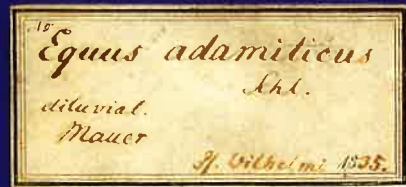 Equus adamiticus
Schl.
diluvial.
Mauer
H. Wilhelmi 1835.